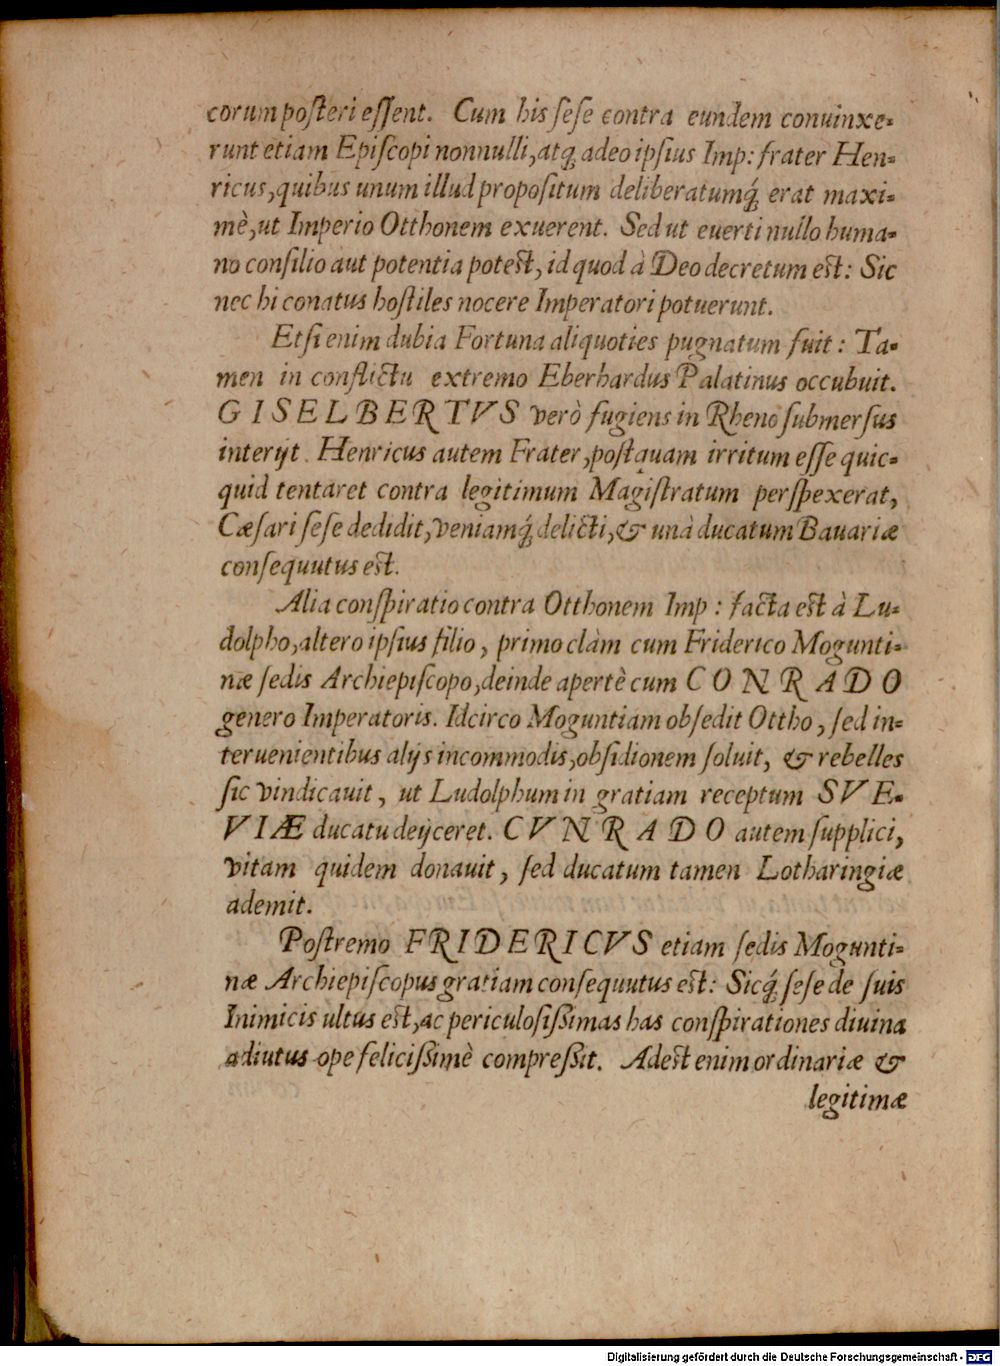 eorum poſteri eſſent. Cum his ſeſe contra eundem conuinxe-
runt etiam Epiſcopi nonnulli, atq́ adeo ipſius Imp: frater Hen-
ricus, quibus unum illud propoſitum deliberatumq́ erat maxi-
mè, ut Imperio Otthonem exuerent. Sed ut euerti nullo huma-
no conſilio aut potentia poteſt, id quod à Deo decretum eſt: Sic
nec hi conatus hoſtiles nocere Imperatori potuerunt.
Etſi enim dubia Fortuna aliquoties pugnatum fuit: Ta-
men in conflictu extremo Eberhardus Palatinus occubuit.
GISELBERTVS verò fugiens in Rheno ſubmerſus
interijt. Henricus autem Frater, poſtquam irritum eſſe quic-
quid tentaret contra legitimum Magiſtratum perſpexerat,
Cæſari ſeſe dedidit, veniamq́ delicti, & unà ducatum Bauariæ
conſequutus eſt.
Alia conſpiratio contra Otthonem Imp: facta eſt à Lu-
dolpho, altero ipſius filio, primo clàm cum Friderico Mogunti-
næ ſedis Archiepiſcopo, deinde apertè cum CONRADO
genero Imperatoris. Idcirco Moguntiam obſedit Ottho, ſed in-
teruenientibus alijs incommodis, obſidionem ſoluit, & rebelles
ſic vindicauit, ut Ludolphum in gratiam receptum SVE-
VIÆ ducatu deijceret. CVNRADO autem ſupplici,
vitam quidem donauit, ſed ducatum tamen Lotharingiæ
ademit.
Poſtremo FRIDERICVS etiam ſedis Mogunti-
næ Archiepiſcopus gratiam conſequutus eſt: Sicq́ ſeſe de ſuis
Inimicis ultus eſt, ac periculoſiſſimas has conſpirationes diuina
adiutus ope feliciſſimè compreſſit. Adeſt enim ordinariæ &
legitimæ
Digitalisierung gefördert durch die Deutsche Forschungsgemeinschaft - DFG